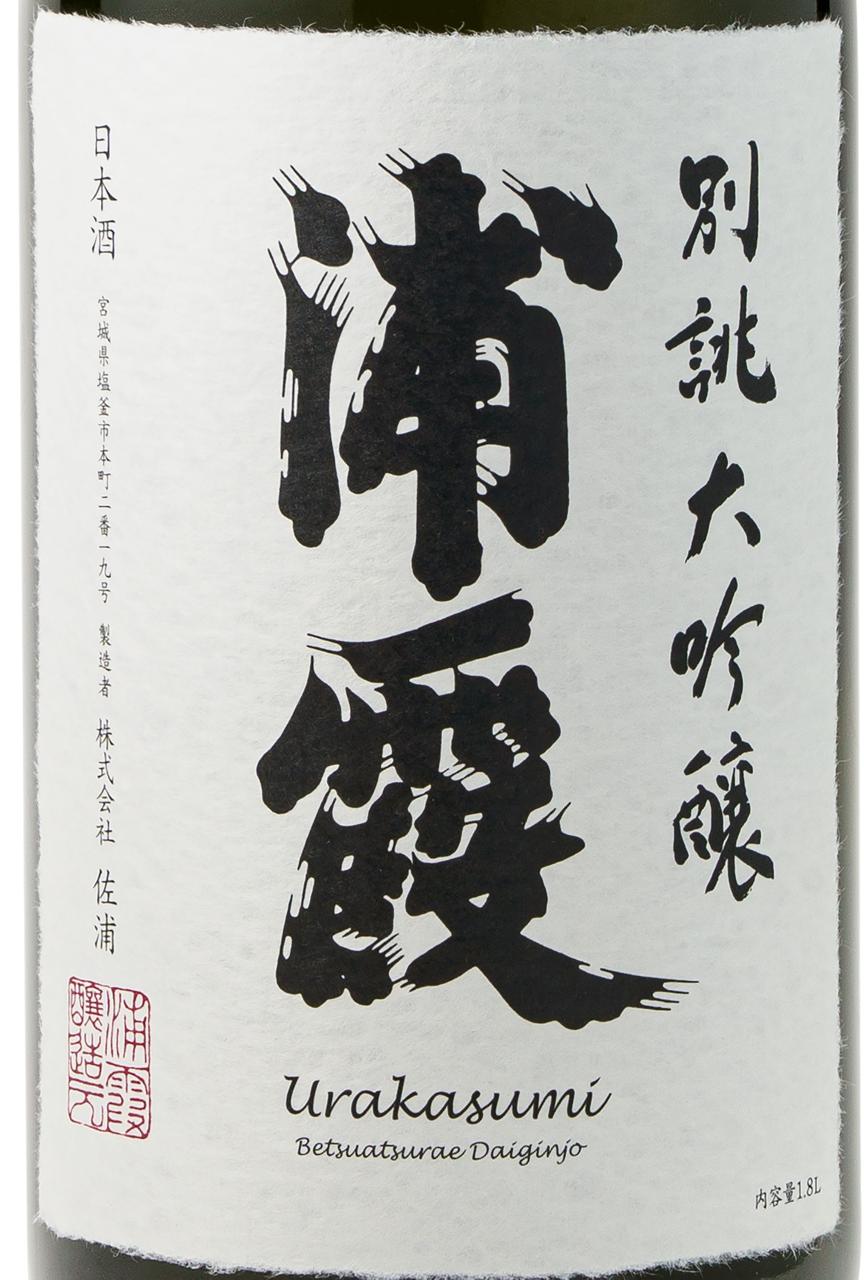 別誂大吟醸
浦霞
日本酒 宮城県塩釜市本町二番一九号 製造者 株式会社 佐浦
浦霞
醸造元
Urakasumi
Betsuatsurae Daiginjo
内容量1.8L